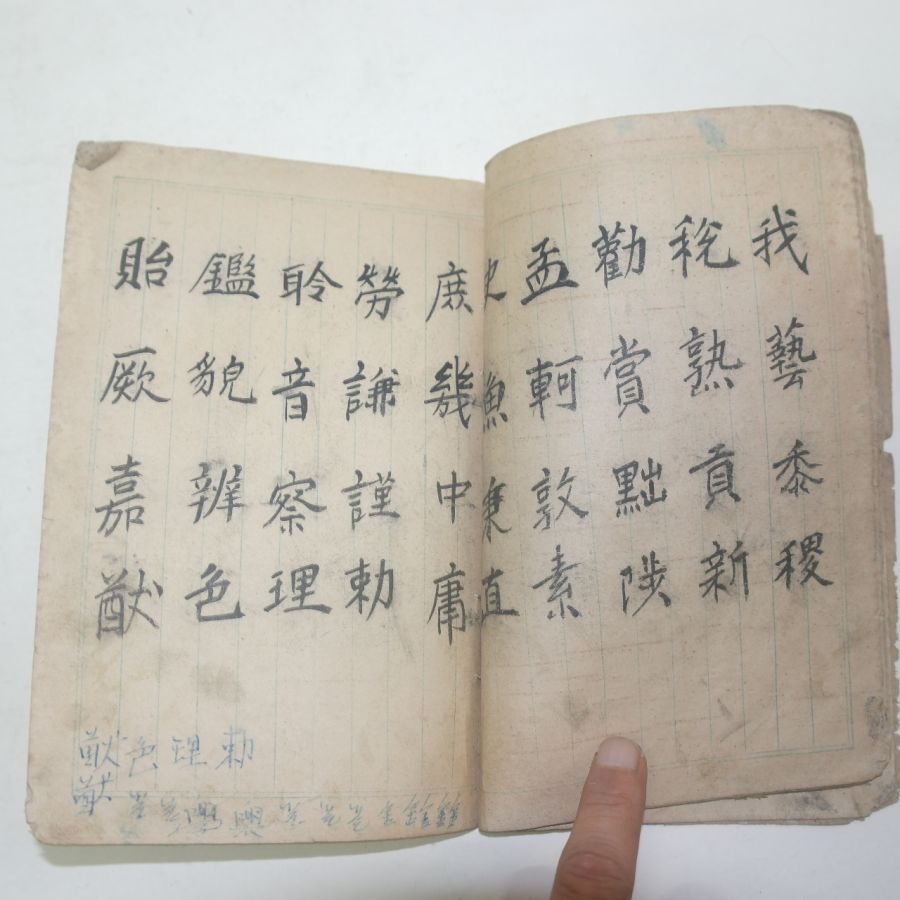 我藝黍稷
稅熟貢新
勸賞黜陟
孟軻敦素
史魚秉直
庶幾中庸
勞謙謹勅
聆音察理
鑑貌辨色
貽厥嘉猷
勅
理
色
猷
猷